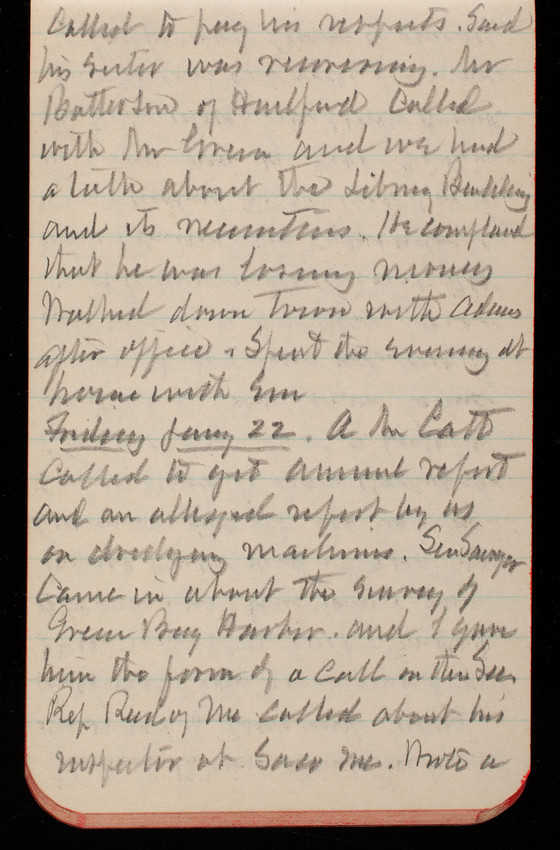 Called to pay his respects. Said
his sister was recovering. Mr
Batterson of Hartford called
with Mr Green and we had
a talk about the Library Building
and its necessities. He complained
that he was losing money
Walked down Town with Adams
after office. Spent the evening at
home with Em
Friday Jany 22. A Mr Catt
called to get annual report
and an alleged report by us
on dredging machines. Sen Sawyer
came in about the survey of
Green Bay Harbor. and I gave
him the form of a call on the Sec
Rep Reed of Me called about his
inspector at Saco Me. Wrote a